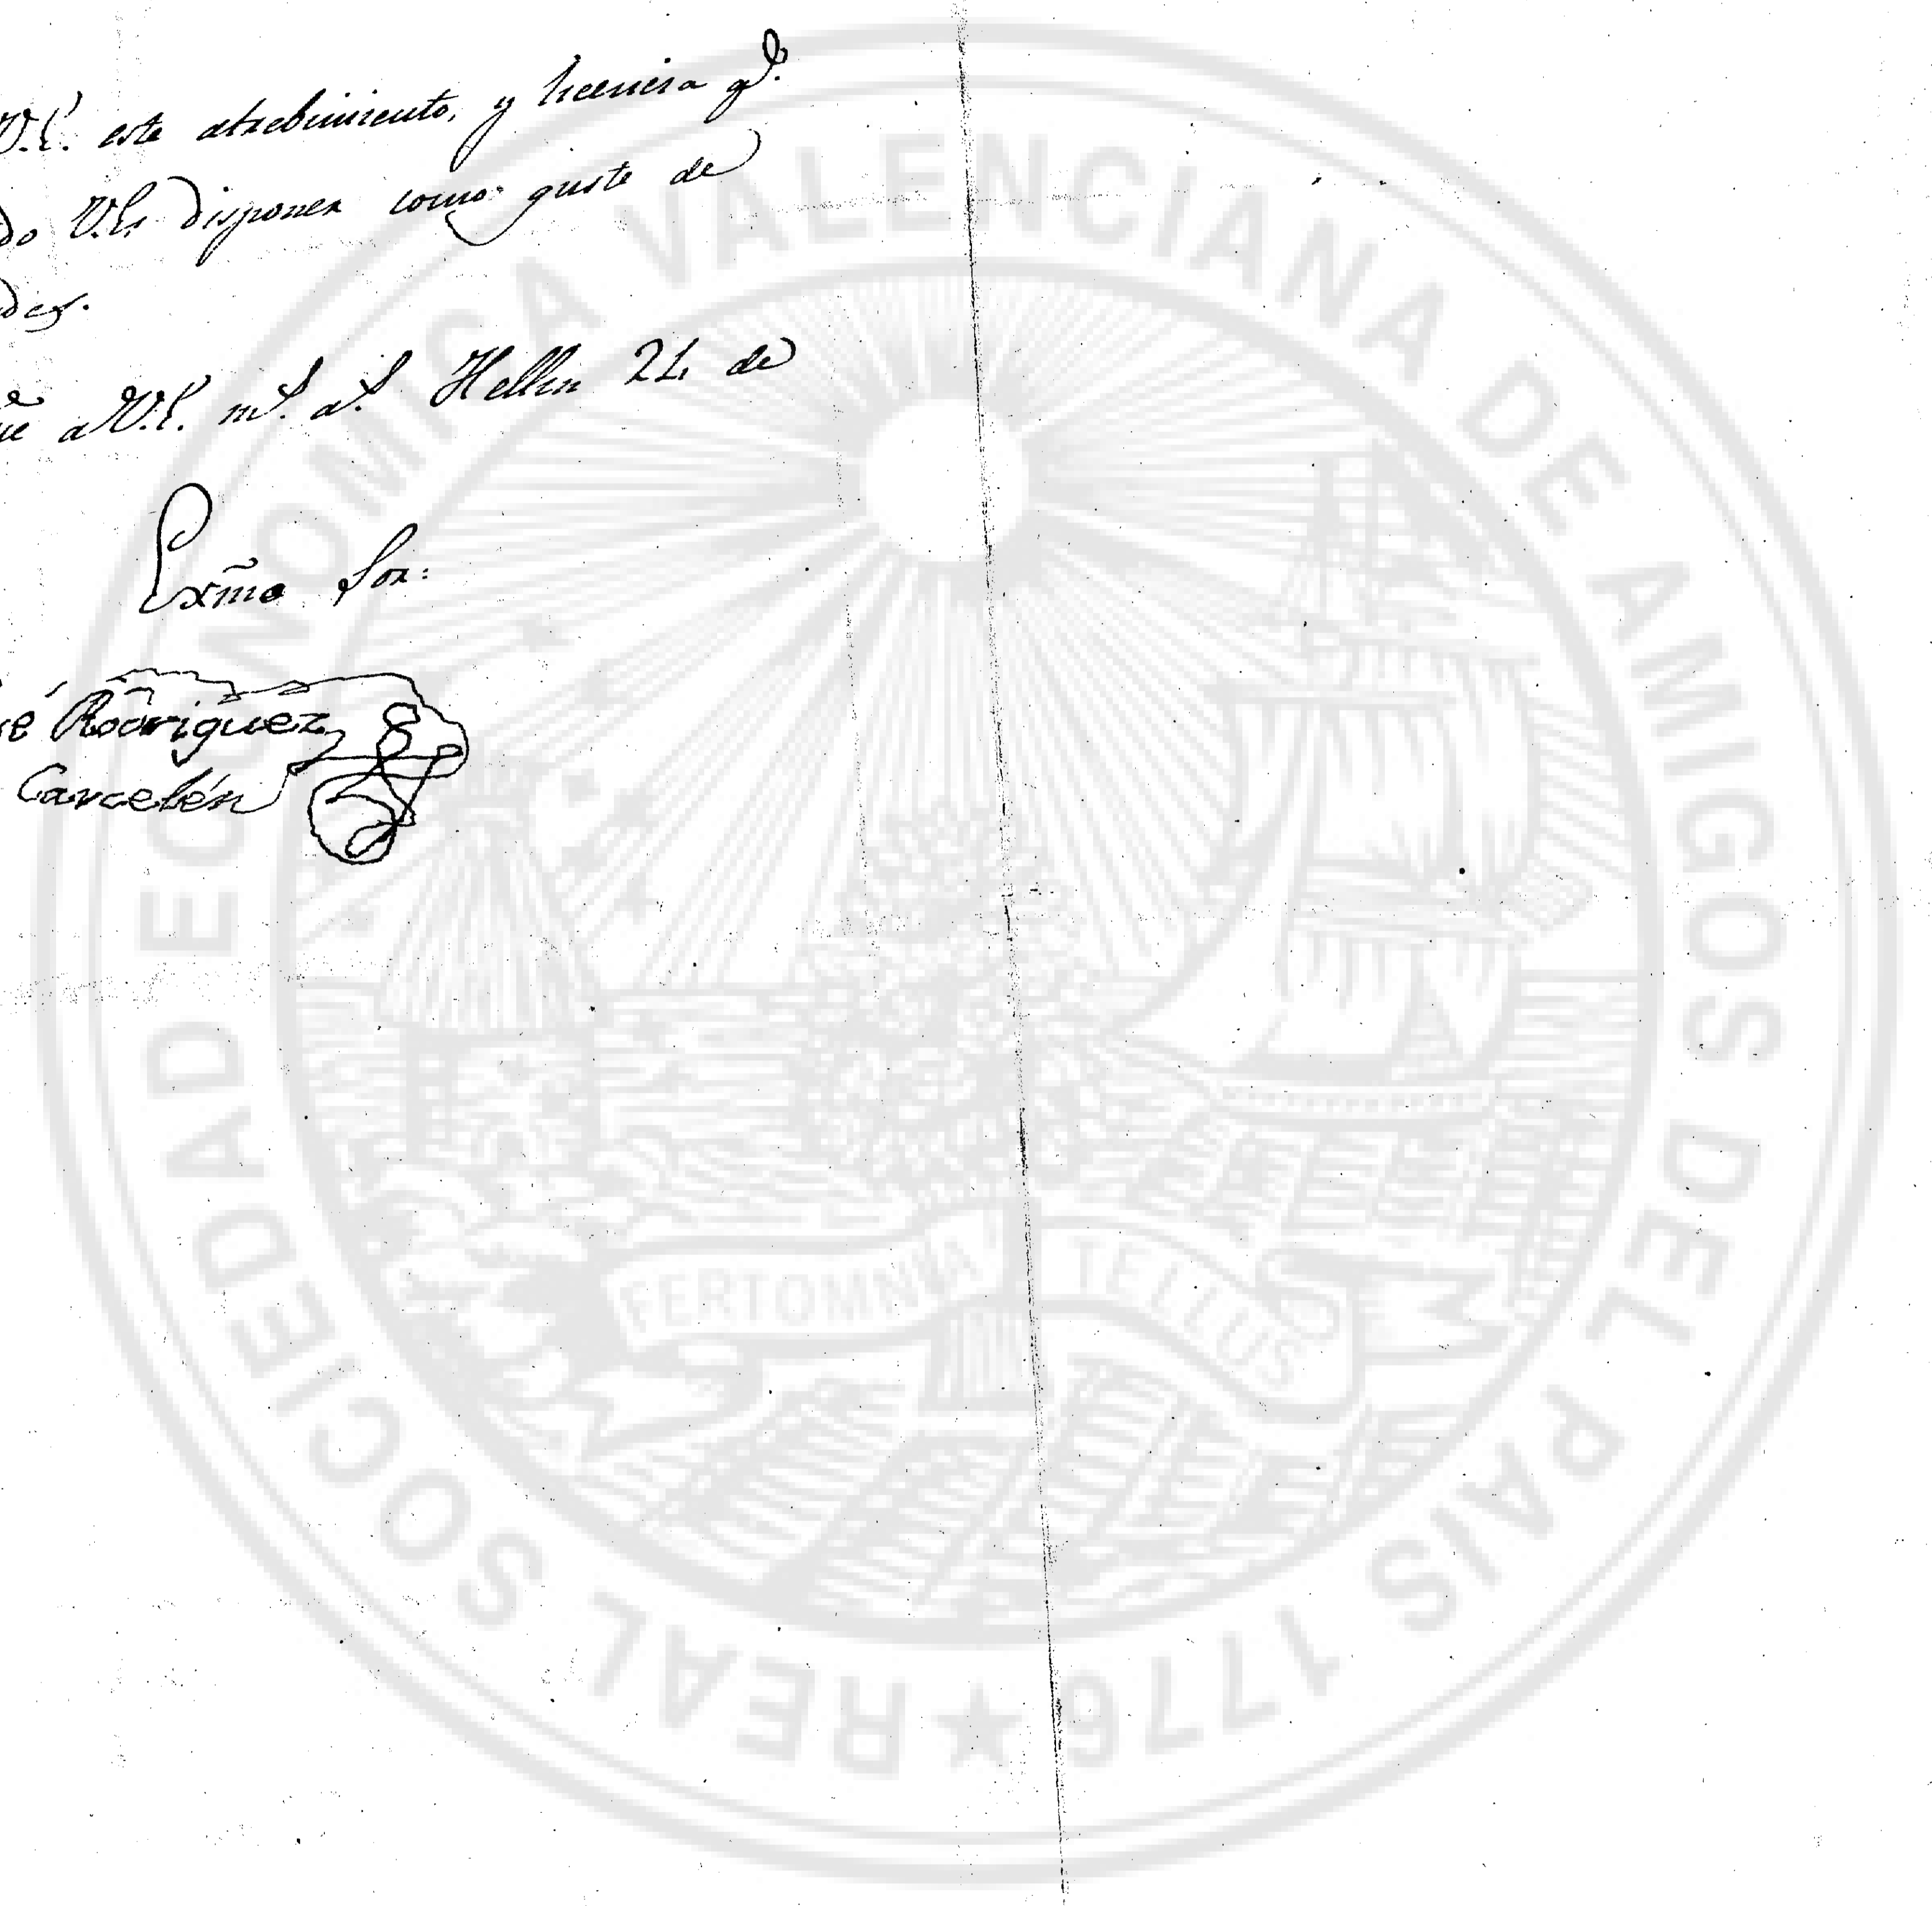 V.E. este atrebimiento, y licencia qe.
do V.E. disponer como guste de
des.
ue a V.E. ms. as. Hellin 21, de
Exmõ Sor:
é Rodriguez
Carcelén
REAL SOCIEDAD ECONOMICA VALENCIANA DE AMIGOS DEL PAIS 1776
FERT OMNIA TELLUS